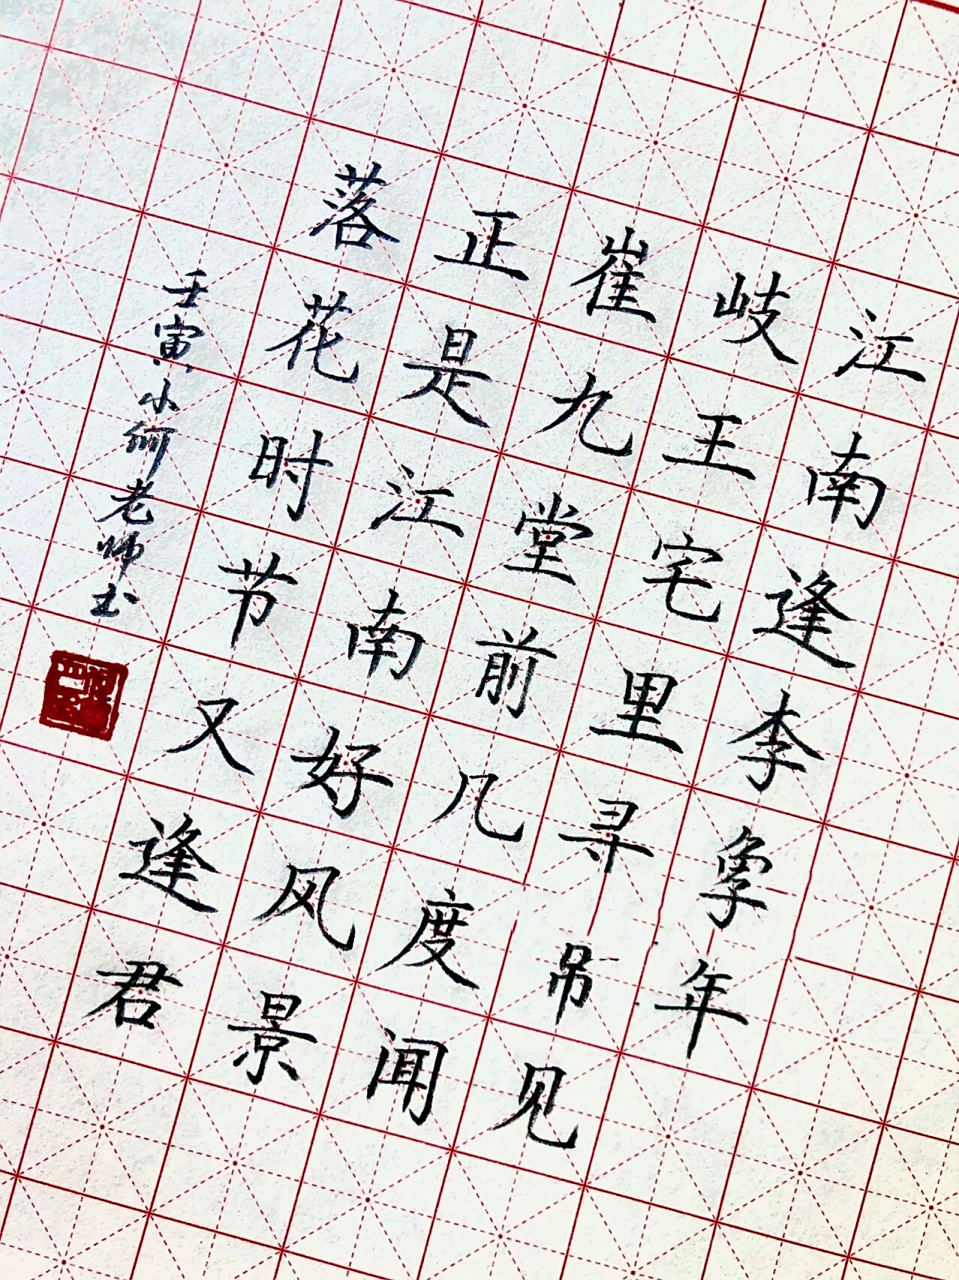 江南逢李年
岐王宅里寻吊见
崔九堂前几度闻
正是江南好风景
落花时节又逢君
壬寅小何老师书